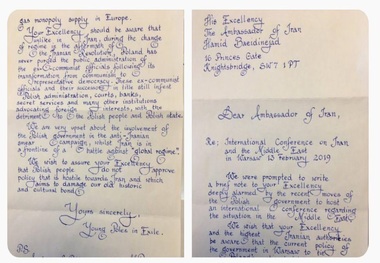 gas monopoly supply in Europe.
Your Excellency should be aware that
unlike in Iran, during the change
of regime in the aftermath of
the Iranian Revolution, Poland has
never purged the public administration of
the ex-communist officials following its
transformation from communism to
representative democracy. These ex-communist
officials and their successors in title still infest
Polish administration, courts, banks,
secret services and many other institutions
advocating foreign interests, with the
detriment to the Polish people and Polish state.
We are very upset about the involvement of
the Polish government in the anti-Iranian
smear campaign, whilst Iran is in
a frontline of a battle against "global regime".
We wish to assure Your Excellency
that Polish people do not approve
policy that is hostile towards Iran and which
aims to damage our old historic
and cultural bond.
Yours sincerely,
Young Poles in Exile.
PS.
His Excellency
The Ambassador of Iran
Hamid Baeidinejad
16 Princes Gate
Knightsbridge, SW7 1PT
Dear Ambassador of Iran,
Re: International Conference on Iran
and the Middle East
in Warsaw 13 February 2019
We were prompted to write
a brief note to Your Excellency
deeply alarmed by the recent moves of
the Polish government to host
an international conference regarding
the situation in the Middle East.
We wish that Your Excellency
and the highest Iranian authorities
be aware that the current policy of
the government in Warsaw to